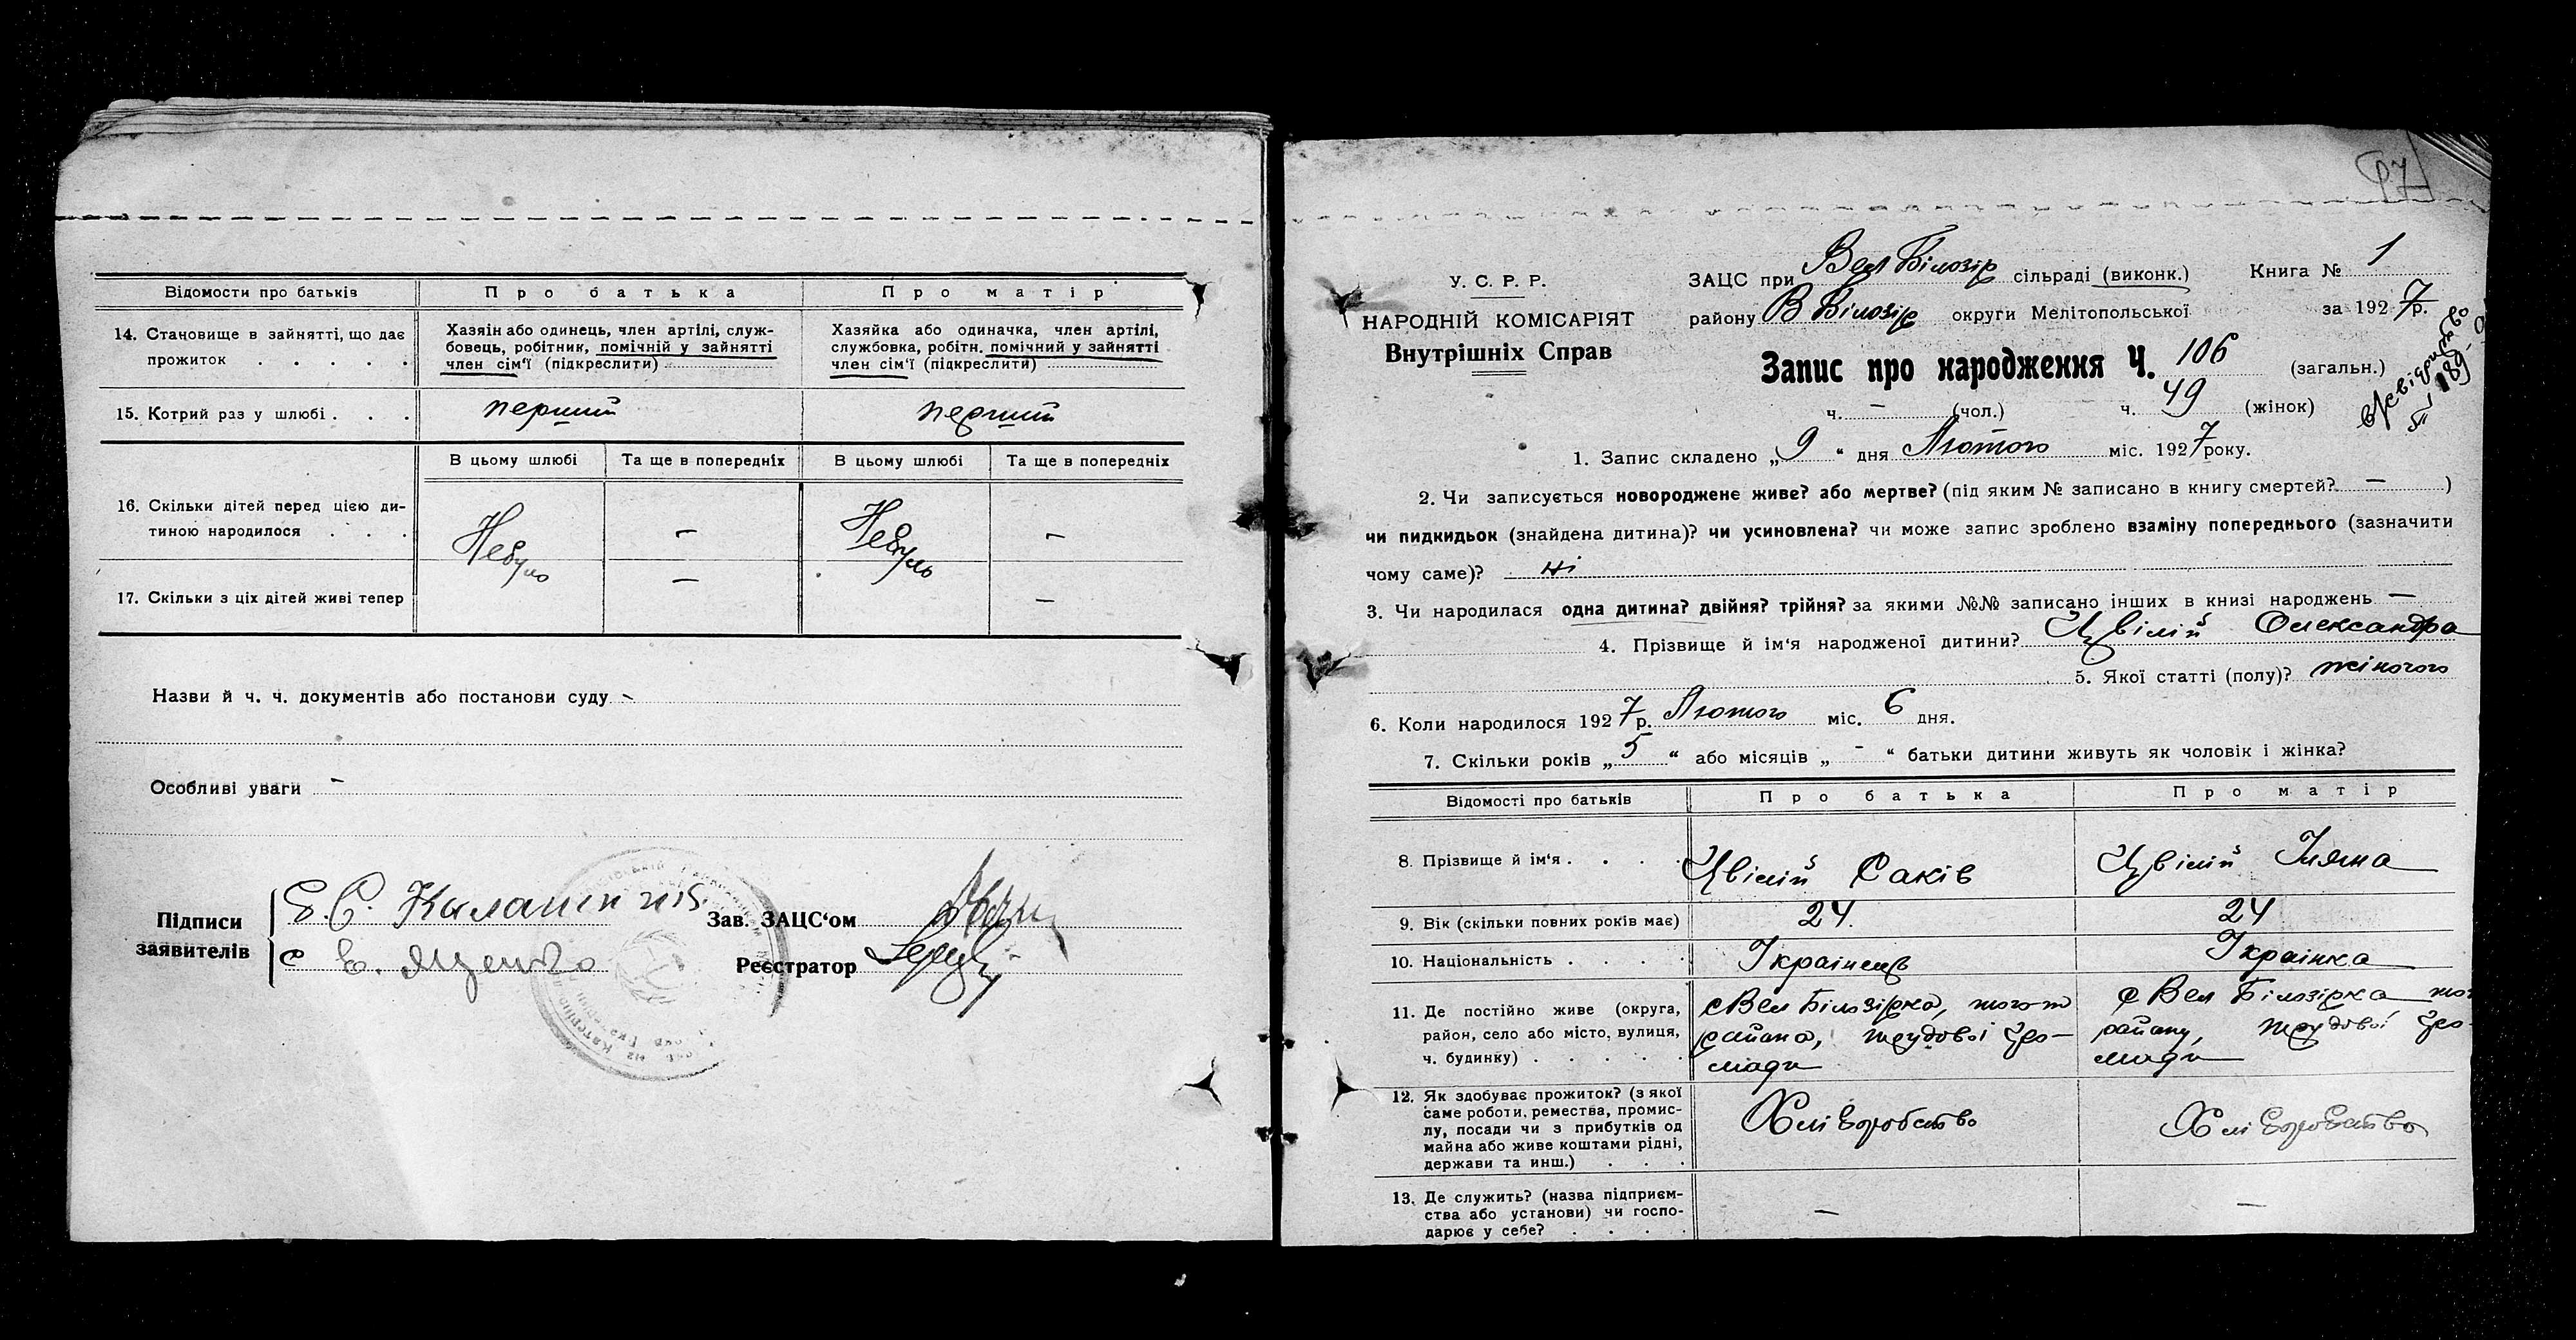 Відомости про батьків
Про батька
Про матір
14. Становище в зайнятті, що дає
прожиток . . . .
Хазяін або одинець, член артілі, служ-
бовець, робітник, помічній у зайнятті
член сім'ї (підкреслити)
Хазяйка або одиначка, член артілі,
службовка, робітн. помічний у зайнятті
член сім'ї (підкреслити)
15. Котрий раз у шлюбі . . .
перший
перший
В цьому шлюбі
Та ще в попередніх
В цьому шлюбі
Та ще в попередніх
16. Скільки дітей перед цією ди-
тиною народилося . . .
Небуло
—
Небуло
—
17. Скільки з ціх дітей живі тепер
—
—
Назви й ч. ч. документів або постанови суду -
Особливі уваги -
Підписи
заявителів
Зав. ЗАЦС'ом
Е. Яценко
Реєстратор
97
У. С. Р. Р.
НАРОДНІЙ КОМІСАРІЯТ
Внутрішніх Справ
ЗАЦС при Вел Білозір сільраді (виконк.) Книга № 1
району В Білозір округи Мелітопольської за 1927р.
Запис про народження Ч. 106 (загальн.)
ч. — (чол.) ч. 49 (жінок)
1. Запис складено „9“ дня Лютого міс. 1927 року.
2. Чи записується новороджене живе? або мертве? (під яким № записано в книгу смертей? — )
чи пидкидьок (знайдена дитина)? чи усиновлена? чи може запис зроблено взаміну попереднього (зазначити
чому саме)? ні
3. Чи народилася одна дитина? двійня? трійня? за якими №№ записано інших в книзі народжень —
4. Прізвище й ім'я народженої дитини? Цвілій Олександра
5. Якої статті (полу)? жіночого
6. Коли народилося 1927р. Лютого міс. 6 дня.
7. Скільки років „5“ або місяців „-“ батьки дитини живуть як чоловік і жінка?
Відомості про батьків
Про батька
Про матір
8. Прізвище й ім'я . . . .
Цвілій Саків
Цвілій
9. Вік (скільки повних років має)
24.
24
10. Національність . . . .
Українець
Українка
11. Де постійно живе (округа,
район, село або місто, вулиця,
ч. будинку) . . . . .
с Вел Білозірка, того ж
района, трудової гро-
мади
с Вел Білозірка
району, трудової гро-
мади
12. Як здобуває прожиток? (з якої
саме роботи, ремества, промис-
лу, посади чи з прибутків од
майна або живе коштами рідні,
держави та инш.) . . .
Хліборобство
Хліборобство
13. Де служить? (назва підприєм-
ства або установи) чи госпо-
дарює у себе? . . . .
—
—